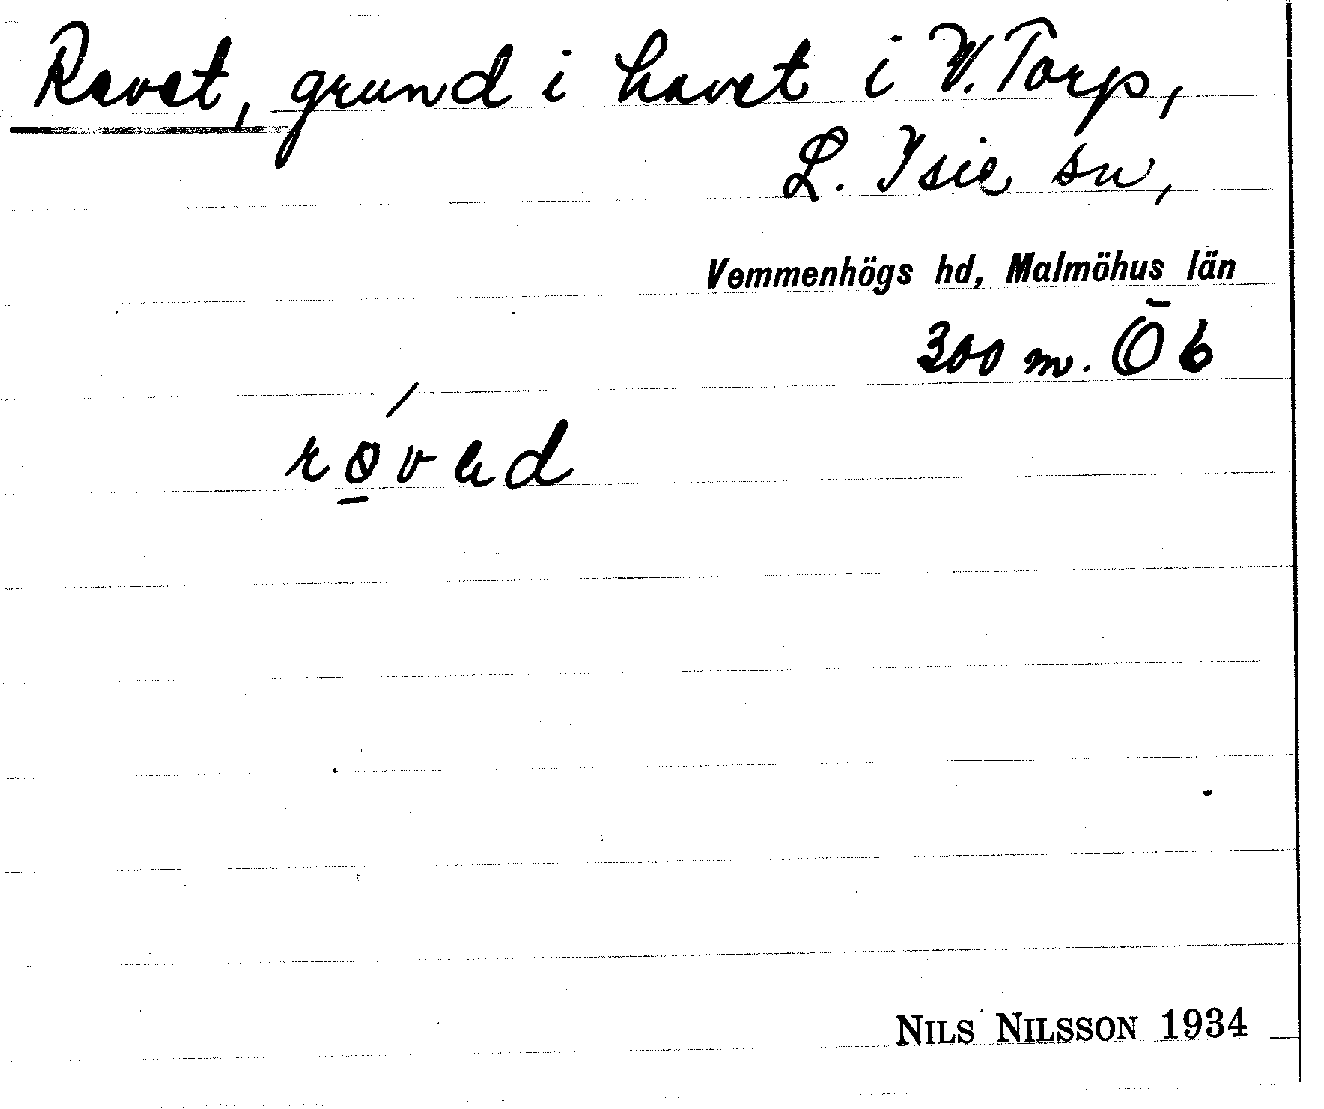 Revet, grund i havet i V. Torp,
L. Isie sn,
Vemmenhögs hd, Malmöhus län
300 m. Ö 6
NILS NILSSON 1934